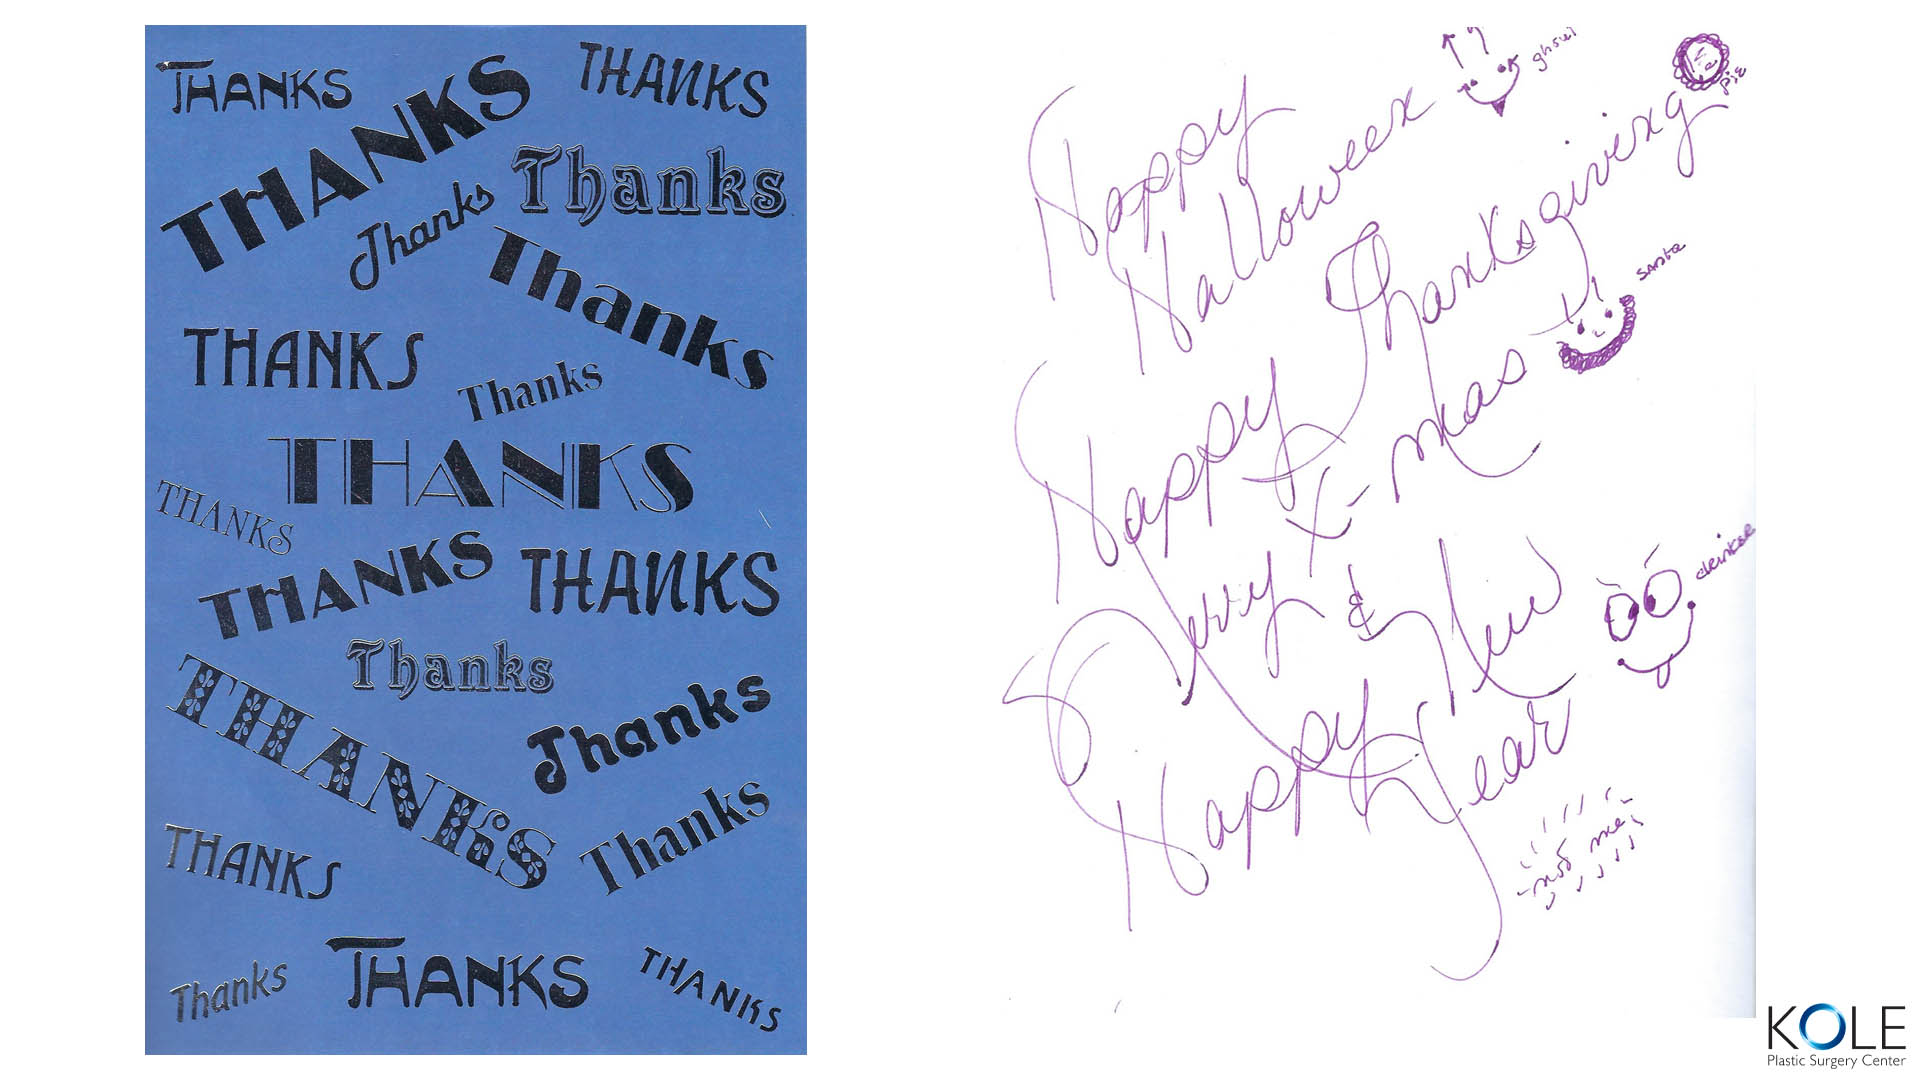 THANKS
THANKS
THANKS
Thanks
Thanks
Thanks
THANKS
Thanks
THANKS
THANKS
THANKS
THANKS
Thanks
THANKS
Thanks
Thanks
THANKS
Thanks
THANKS
THANKS
Happy
Halloween
ghoul
Happy Thanksgiving
pie
Merry X-mas
santa
& Happy New
Year
drinker
not me
KOLE
Plastic Surgery Center